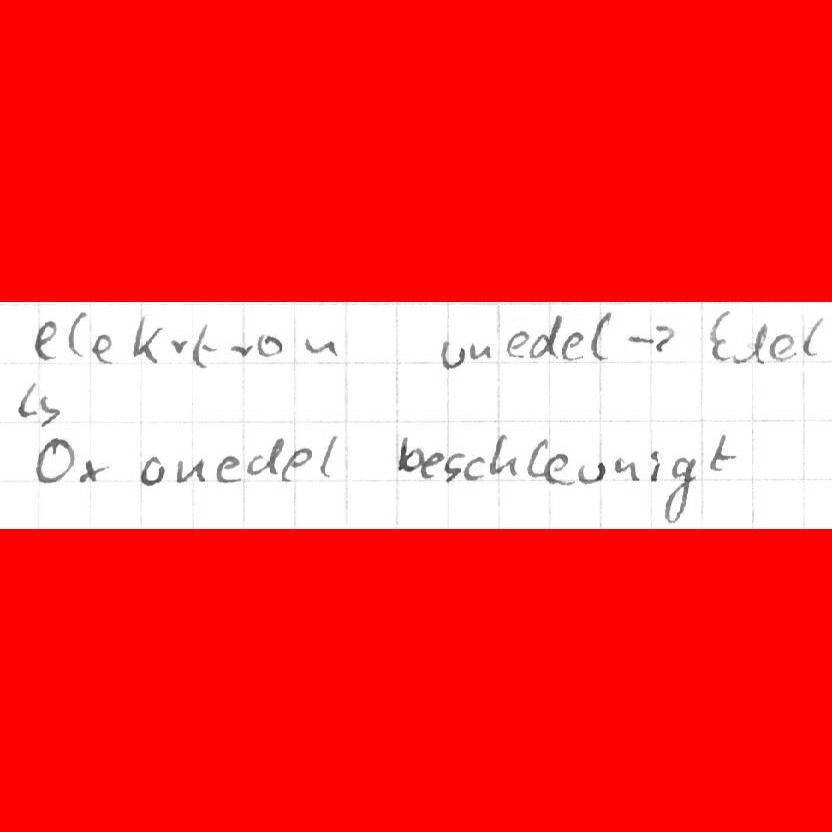 elekrtron unedel -> Edel
↳
Ox unedel beschleunigt